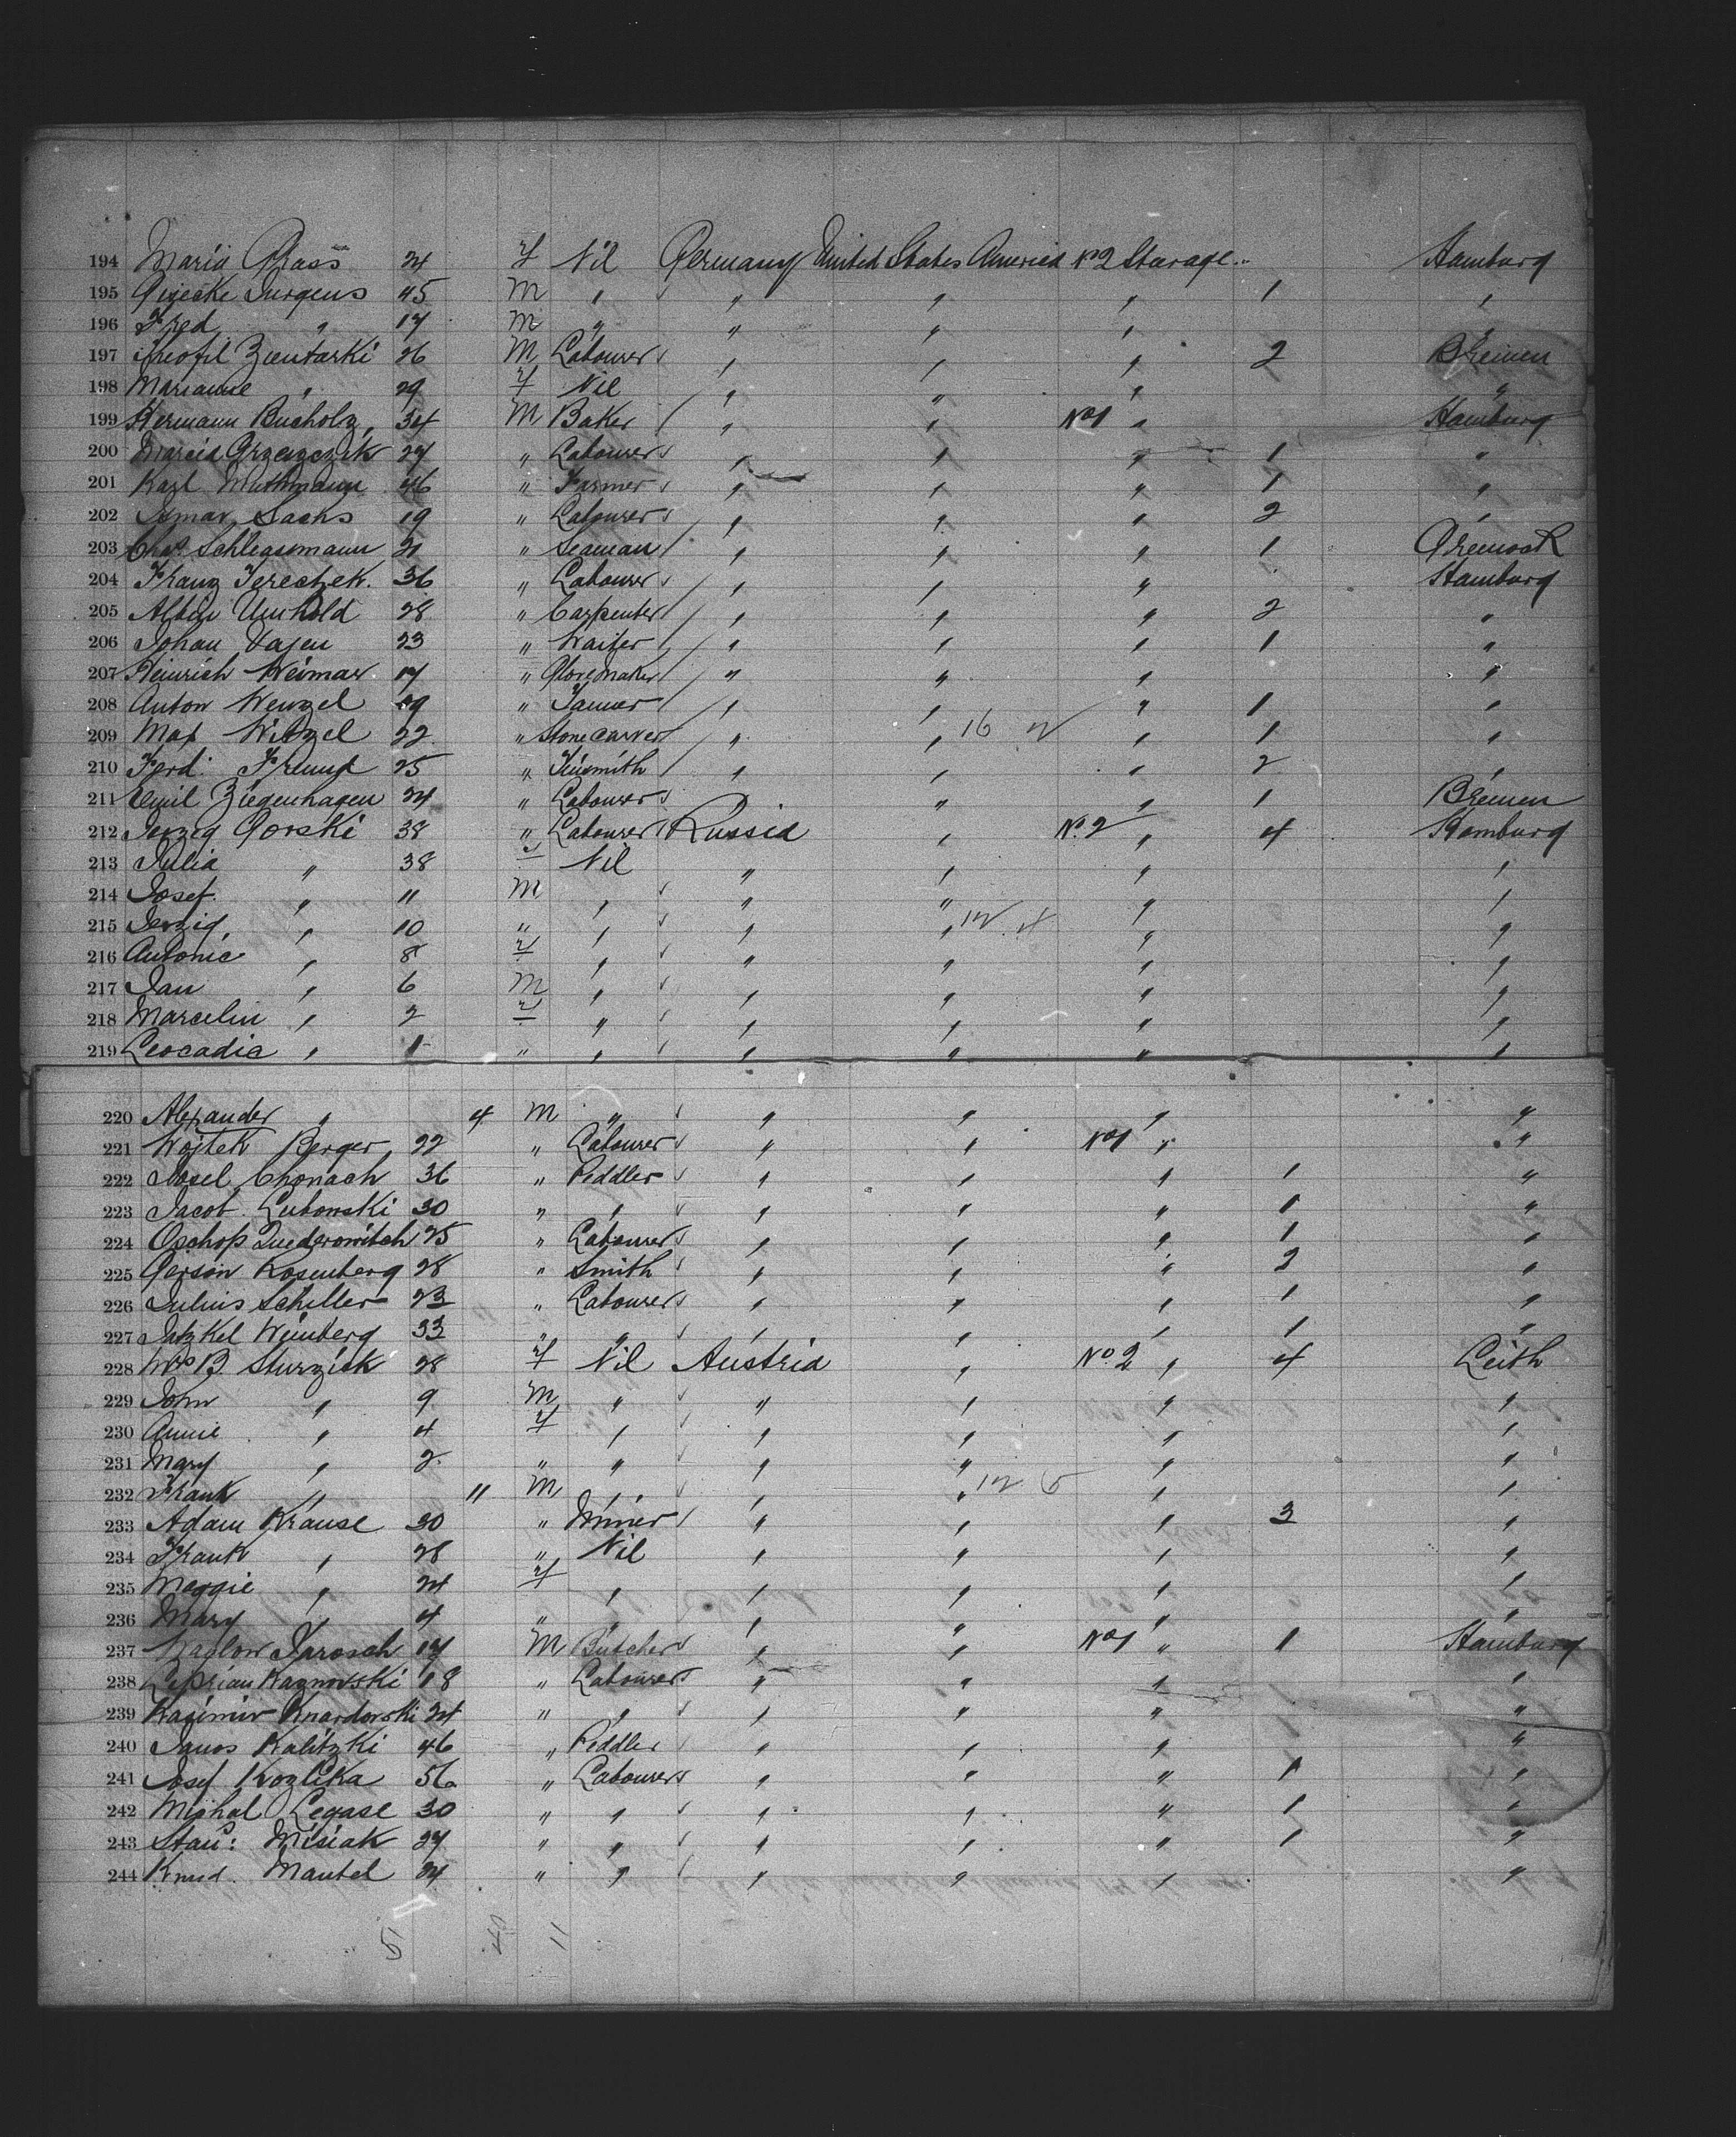 194 Maria Grass 24 f Nil Germany United States America No 2 Stearage " Hamburg
195 Giziecke Jurgens 45 M " " " " 1 "
196 Fred " 17 M " " " " "
197 Theofil Zientarski 26 M Labourer " " " 2 Bremen
198 Marianne " 29 f Nil " " " "
199 Hermann Bucholz 34 M Baker " " No 1 " Hamburg
200 27 " Labourer " " " 1 "
201 Karl Muthmann 46 " Farmer " " " 1 "
202 Sachs 19 " Labourer " " " 2 "
203 Chas. Schleassmann 21 " Seaman " " " 1 Greenock
204 Franz Jerechek 36 " Labourer " " " Hamburg
205 Albin Umhold 28 " Carpenter " " " 2 "
206 Johan Vajen 23 " Waiter " " " 1 "
207 Heinrich Weimar 17 " Glovemaker " " " "
208 Anton Wenzel 29 " Tanner " " " 1 "
209 Max Witzel 22 " Stonecarver " " 16 2 " 1 "
210 Ferd. 25 " Tinsmith " " " 2 "
211 Emil Ziegenhagen 24 " Labourer " " " 1 Bremen
212 Jerzig Gorski 38 " Labourer Russia " No. 2 " 4 Hamburg
213 Julia " 38 f Nil " " " "
214 Josef " 11 M " " " " "
215 Jerzig " 10 " " " " 12 4 " "
216 Antonie " 8 f " " " " "
217 Jan " 6 M " " " " "
218 Marcelin " 2 f " " " " "
219 Leocadia " 1 " " " " " "
220 Alexander " 4 M " " " " "
221 Wojtek Berger 22 " Labourer " " No 1 " "
222 Josel Chonach 36 " Peddler " " " 1 "
223 Jacob Lubowski 30 " " " " " 1 "
224 Oschop 25 " Labourer " " " 1 "
225 Gerson Rosenberg 28 " Smith " " " 2 "
226 Julius Schiller 23 " Labourer " " " 1 "
227 Jatzkel Weinberg 33 " " " " " 1 "
228 Mrs B. Sturzick 28 f Nil Austria " No 2 " 4 Leith
229 John " 9 M " " " " "
230 Annie " 4 f " " " " "
231 Mary " 2 " " " " " "
232 Frank " 11 M " " " 12 6 " "
233 Adam Krause 30 " Miner " " " 3 "
234 Frank " 28 " Nil " " " "
235 Maggie " 24 f " " " " "
236 Mary " 4 " " " " " "
237 Jarosch 17 M Butcher " " No 1 " 1 Hamburg
238 Kaznovski 18 " Labourer " " " "
239 Kasimir Knardovski 24 " " " " " "
240 Janos Kalitzki 46 " Peddler " " " "
241 Josef Kozlika 56 " Labourer " " " 1 "
242 Michal Legase 30 " " " " " 1 "
243 Staus: Misiak 27 " " " " " 1 "
244 Knud. Mantel 24 " " " " " "
5 40 11